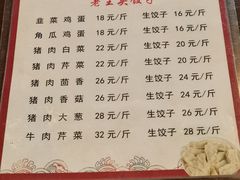 老王头饺子
韭菜鸡蛋 18元/斤 生饺子 16元/斤
角瓜鸡蛋 18元/斤 生饺子 16元/斤
猪肉白菜 22元/斤 生饺子 20元/斤
猪肉芹菜 22元/斤 生饺子 20元/斤
猪肉茴香 26元/斤 生饺子 24元/斤
猪肉香菇 26元/斤 生饺子 24元/斤
猪肉大葱 28元/斤 生饺子 26元/斤
牛肉芹菜 32元/斤 生饺子 28元/斤